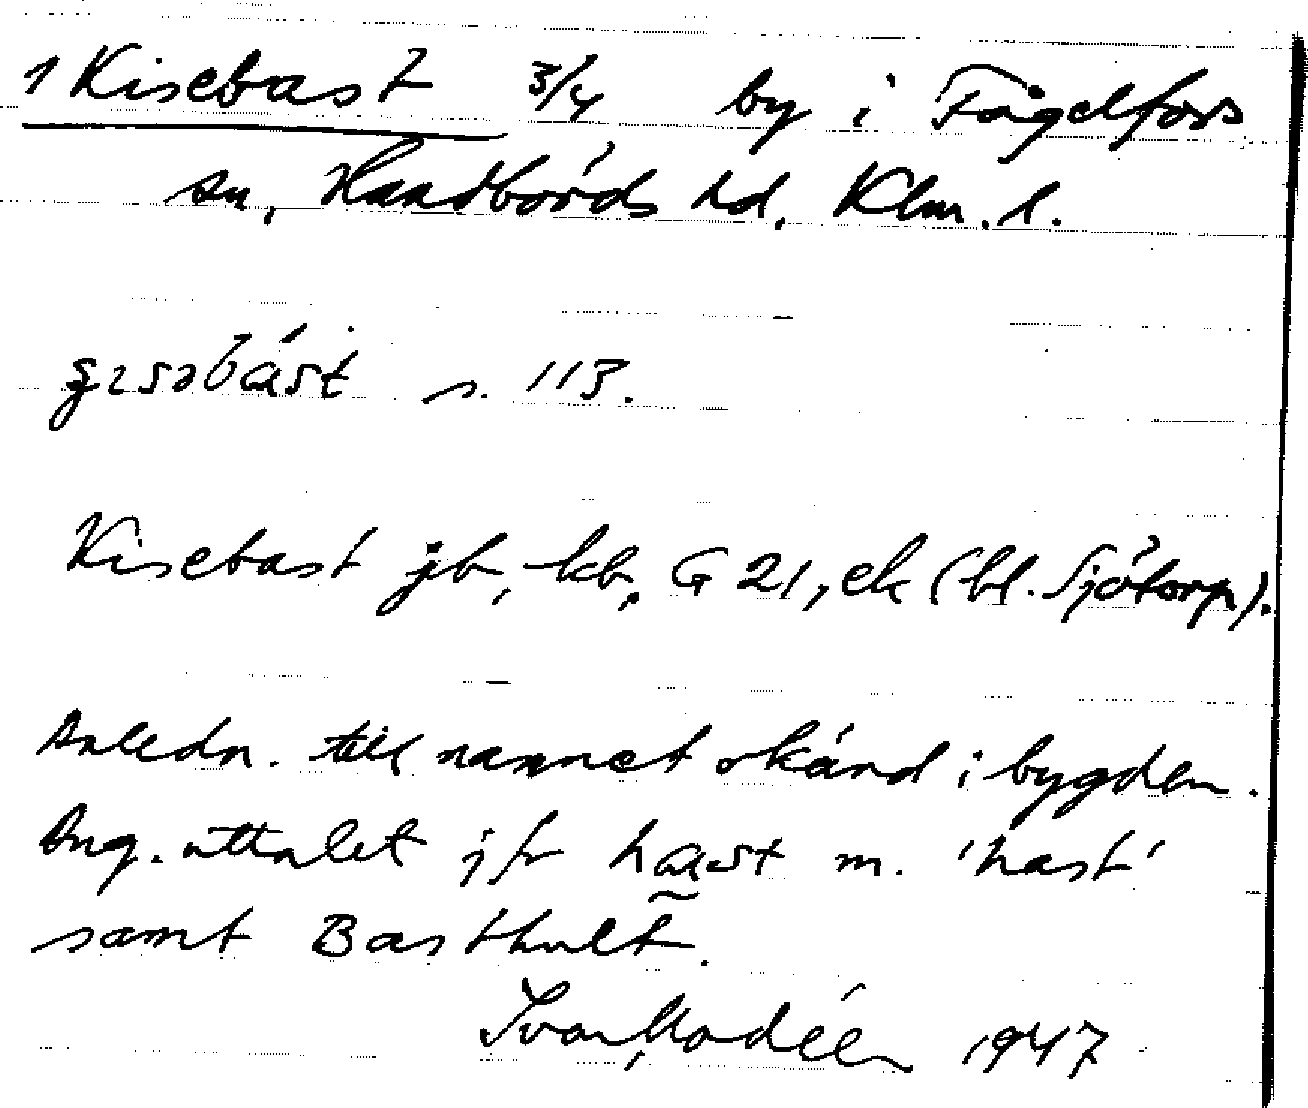 1 Kisebast 3/4 by i Fågelfors
sn, Handbörds hd. Klm. l.
s. 113.
Kisebast jb, kb, G 21, ek (bl. Sjötorp).
Anledn. till namnet okänd i bygden.
Ang. uttalet jfr hast m. 'hast'
samt Basthult.
Ivar Modéer 1947